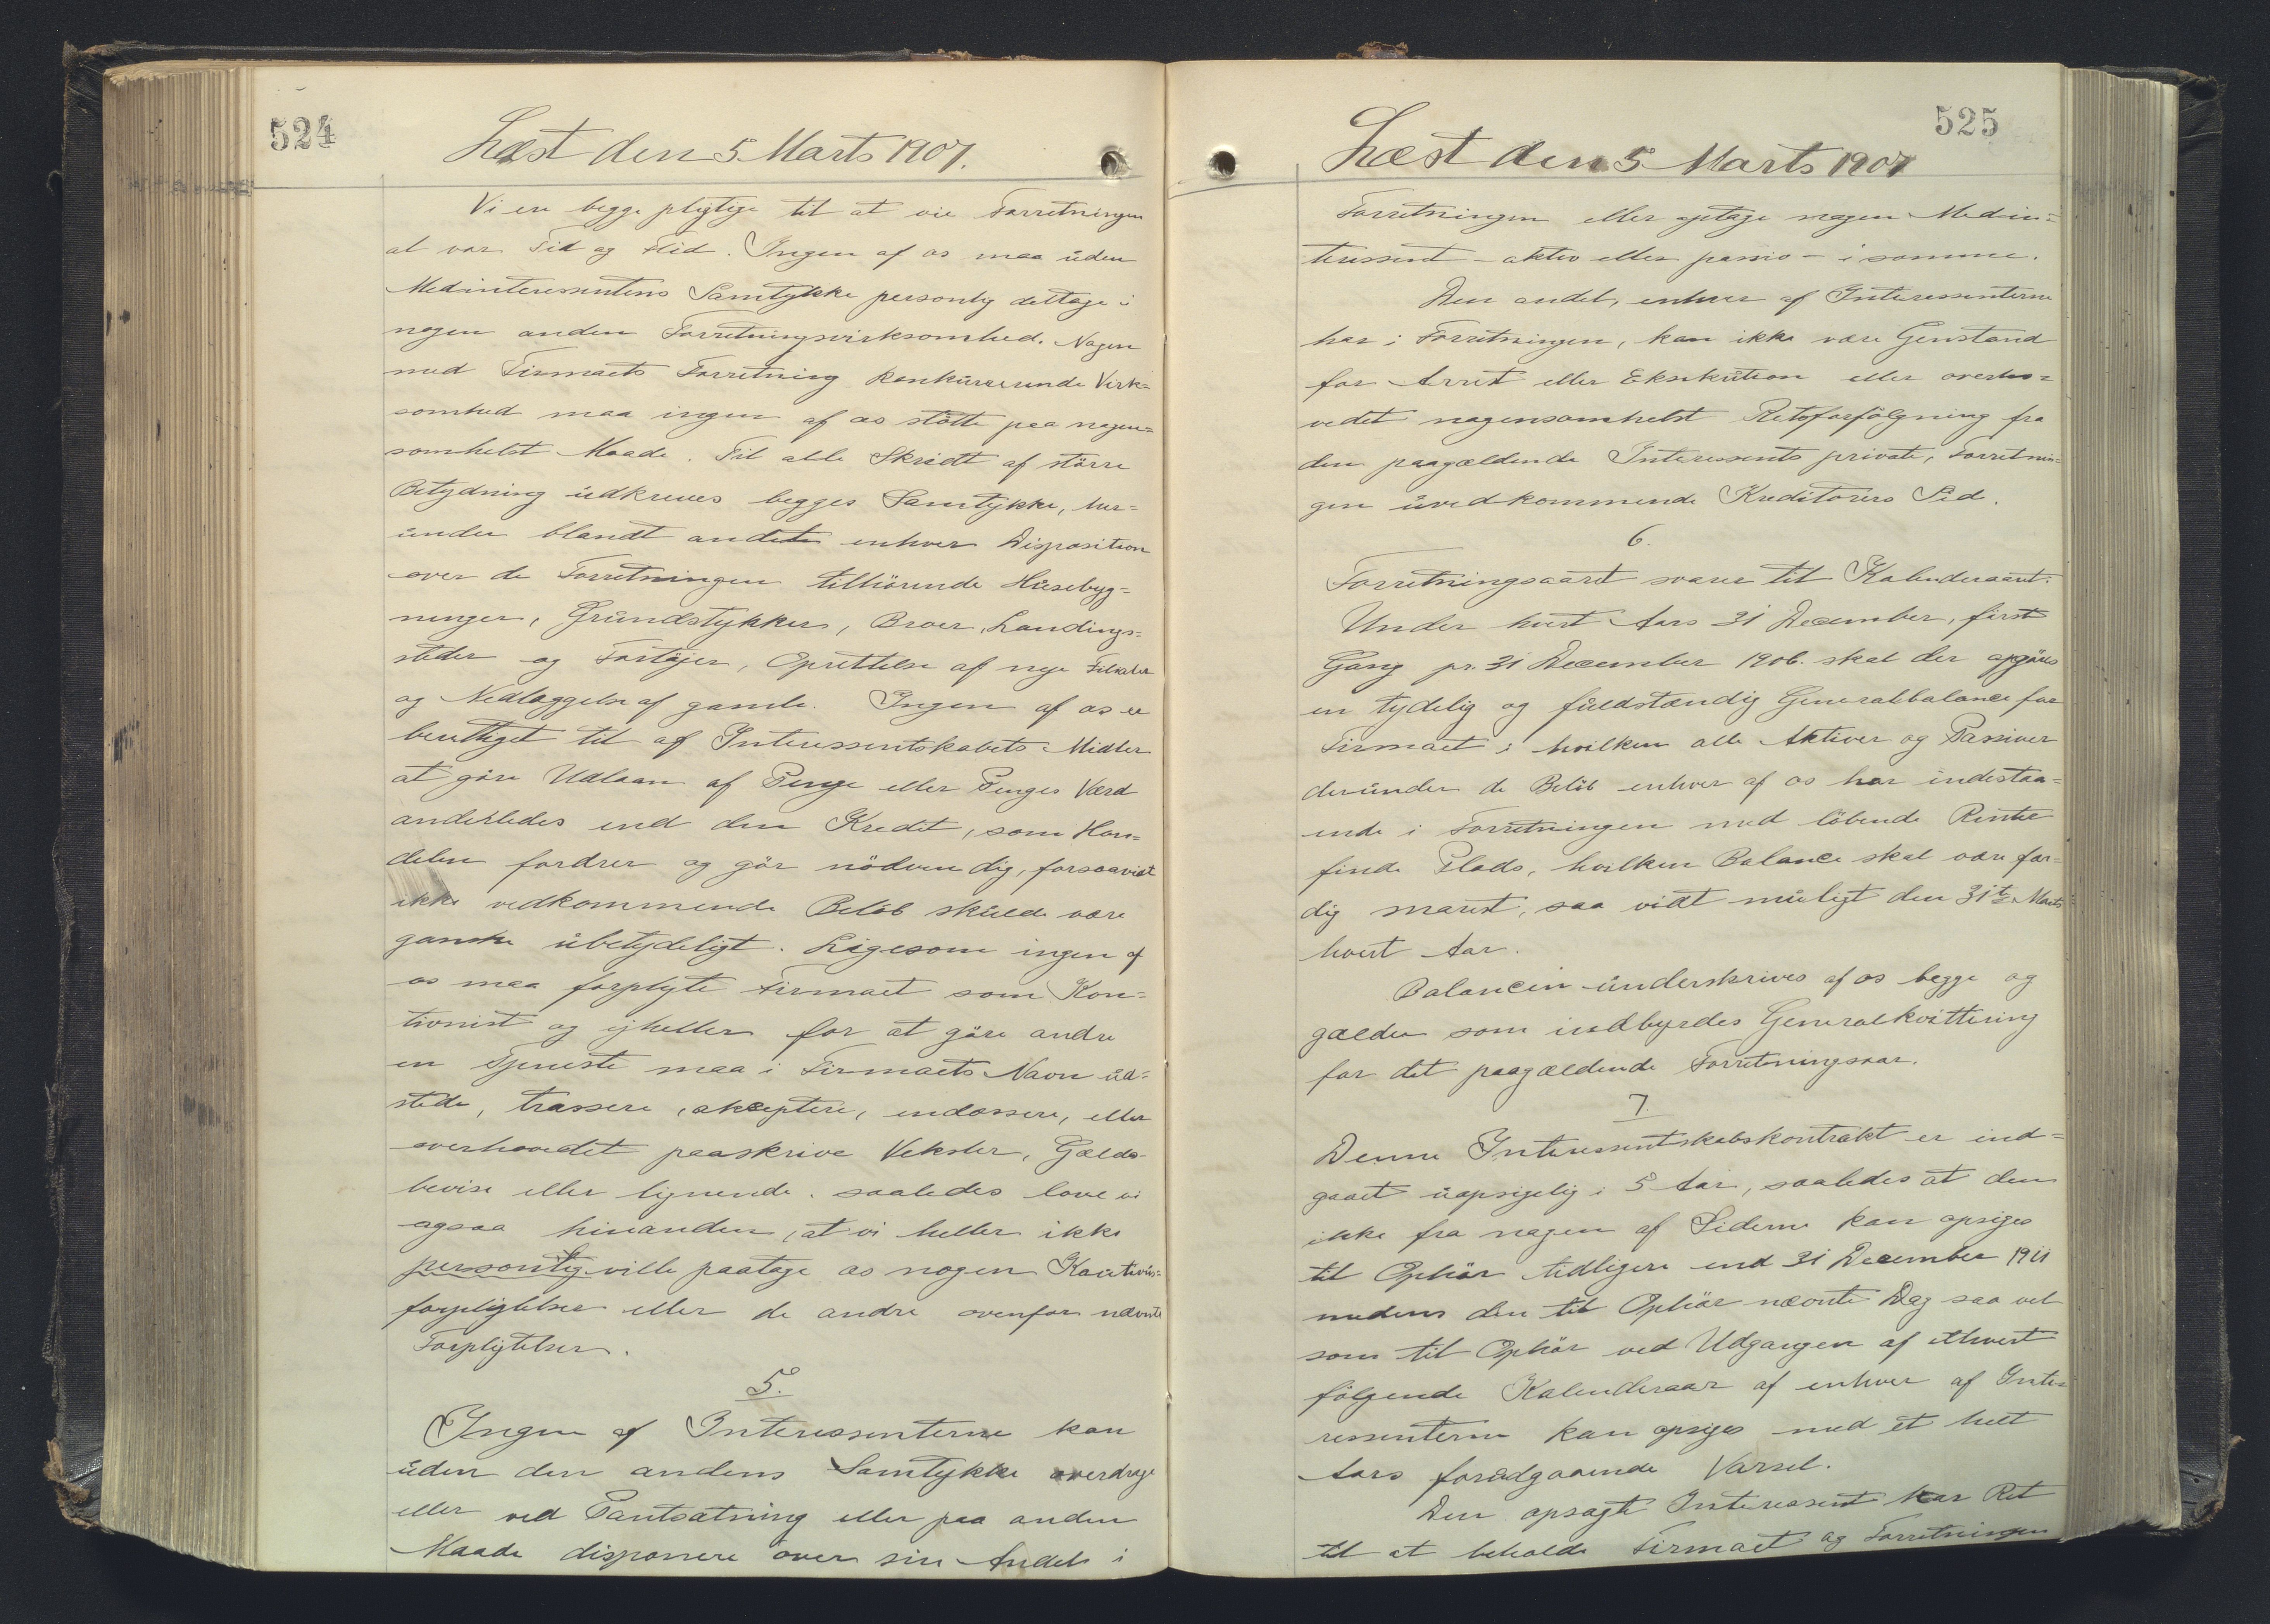 524
Læst den 5. Marts 1907.
Vi ere begge pligtige til at vie Forretningen
al vor Tid og Flid. Ingen af os maa uden
Medinteressentens Samtykke personlig deltage i
nogen anden Forretningsvirksomhed. Nogen
med Firmaets Forretning konkurrerende Virk=
somhed maa ingen af os støtte paa nogen=
somhelst Maade. Til alle Skridt af större
Betydning udkreves begges Samtykke, her=
under blandt andet enhver Disposition
over de Forretningen tilhörende Husebyg=
ninger, Grundstykker, Broer, Landings=
steder og Fartöjer, Oprettelse af nye Filialer
og Nedlæggelse af gamle. Ingen af os er
berettiget til af Interessentskabets Midler
at göre Udlaan af Penge eller Penges Værd
anderledes end den Kredit, som Han=
delen fordrer og gör nödvendig, forsaavidt
ikke vedkommende Belöb skulde være
ganske ubetydeligt. Ligesom ingen af
os maa forpligte Firmaet som Kou=
tionist og ejheller for at göre andre
en Tjeneste maa i Firmaets Navn ud=
stede, trassere, akceptere, endossere, eller
overhovedet paaskrive Veksler, Gælds-
bevise eller lignende. saaledes love vi
ogsaa hinanden, at vi heller ikke
personlig ville paatage os nogen Kautions=
forpligtelser eller de andre ovenfor nævnte
Forpligtelser.
5.
Ingen af Interessenterne kan
uden den andens Samtykke overdrage
eller ved Pantsætning eller paa anden
Maade disponere over sin Andel i
525
Læst den 5 Marts 1907
Forretningen eller optage nogen Medin=
teressent - aktiv eller passiv - i samme.
Den andel, enhver af Interessenterne
har i Forretningen, kan ikke være Genstand
for Arrest eller Eksekution eller overho=
vedet nogensomhelst Retsforfölgning fra
den paagældende Interessents private, Forretnin=
gen uvedkommende Kreditorers Sid.
6.
Forretningsaaret svarer til Kalenderaaret.
Under hvert Aars 31 December, först
Gang pr. 31 December 1906. skal der opgöres
en tydelig og fuldstændig Generalbalance for
Firmaet i hvilken alle Aktiver og Passiver
derunder de Belöb enhver af os har indestaa=
ende i Forretningen med löbende Rente
finde Plads, hvilken Balance skal være fær=
dig snarest, saa vidt muligt den 31te Marts
hvert Aar.
Balancen underskrives af os begge og
gælder som indbyrdes Generalkvittering
for det paagældende Forretningsaar.
7.
Denne Interessentskabskontrakt er ind=
gaaet uopsigelig i 5 Aar, saaledes at den
ikke fra nogen af Siderne kan opsiges
til Ophör tidligere end 31 December 1911
medens den til Ophör nævnte Dag saa vel
som til Ophör ved Udgangen af ethvert
fölgende Kalenderaar af enhver af Inte=
ressenterne kan opsiges med et helt
Aars forudgaaende Varsel.
Den opsagte Interessent har Ret
til at beholde Firmaet og Forretningen